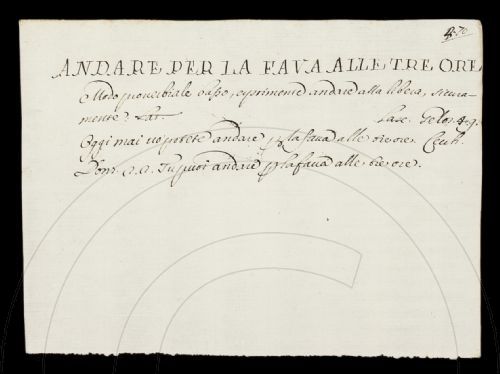 70
ANDARE PER LA FAVA ALLE TRE ORE
Modo proverbiale basso, esprimente andare alla libera, sicura-
mente. Lasc. Gelos. 4. 9.
Oggi mai vo potete andare per la fava alle tre ore. Cecch.
Tu puoi andare per la fava alle tre ore.